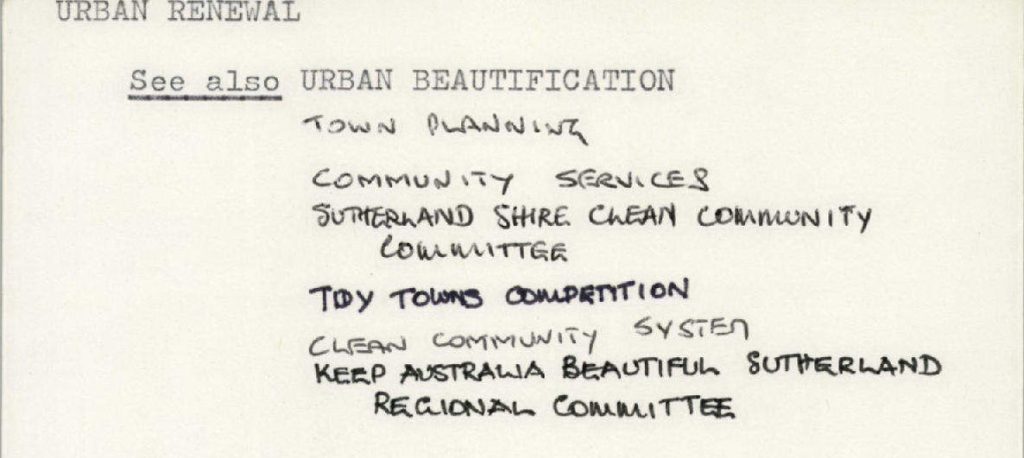 URBAN RENEWAL
See also URBAN BEAUTIFICATION
TOWN PLANNING
COMMUNITY SERVICES
SUTHERLAND SHIRE CLEAN COMMUNITY
COMMITTEE
TIDY TOWNS COMPETITION
CLEAN COMMUNITY SYSTEM
KEEP AUSTRALIA BEAUTIFUL SUTHERLAND
REGIONAL COMMITTEE